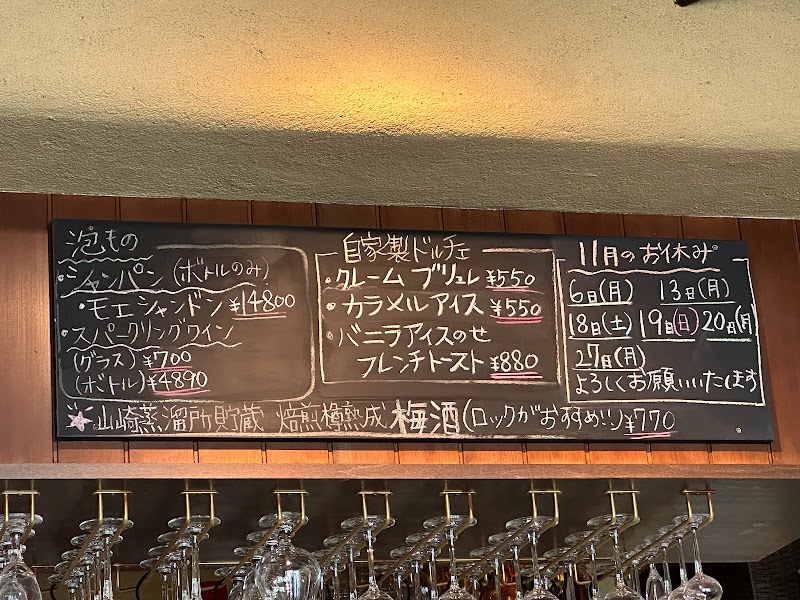 泡もの
・シャンパン (ボトルのみ)
・モエシャンドン ¥14800
・スパークリングワイン
(グラス) ¥700
(ボトル) ¥4890
自家製ドルチェ
・クレームブリュレ ¥550
・カラメルアイス ¥550
・バニラアイスのせ
フレンチトースト ¥880
11月のお休み
6日(月) 13日(月)
18日(土) 19日(日) 20日(月)
27日(月)
よろしくお願いいたします
★山崎蒸溜所貯蔵 焙煎樽熟成 梅酒(ロックがおすすめ!!) ¥770